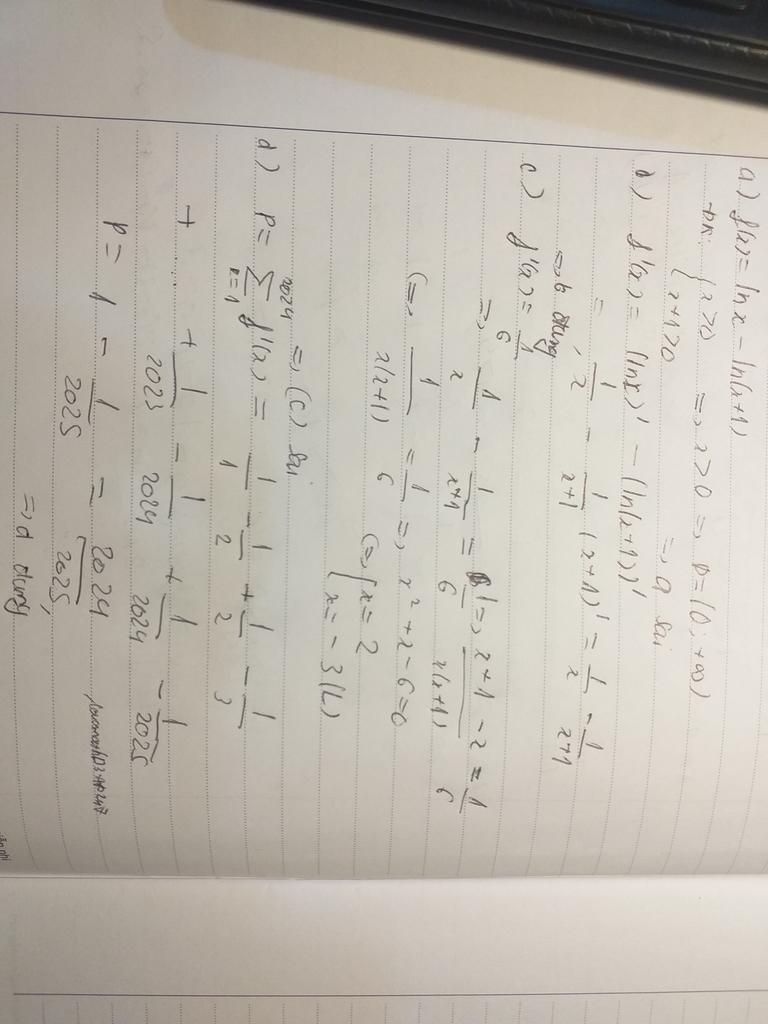 a) f(x) = ln x - ln(x+1)
ĐK: { x>0
x+1>0 => x>0 => D = (0; +∞)
=> a sai
b) f'(x) = (lnx)' - (ln(x+1))'
= 1/x - 1/(x+1) (x+1)' = 1/x - 1/(x+1)
=> b đúng
c) f'(x) = 1/6
=> 1/x - 1/(x+1) = 1/6 => (x+1-x)/(x(x+1)) = 1/6
<=> 1/(x(x+1)) = 1/6 => x² + x - 6 = 0
<=> { x = 2
x = -3 (L)
=> (c) sai
d) P = 2024 ∑ f'(x) = 1/1 - 1/2 + 1/2 - 1/3
+ ..... + 1/2023 - 1/2024 + 1/2024 - 1/2025
P = 1 - 1/2025 = 2024/2025
=> d đúng